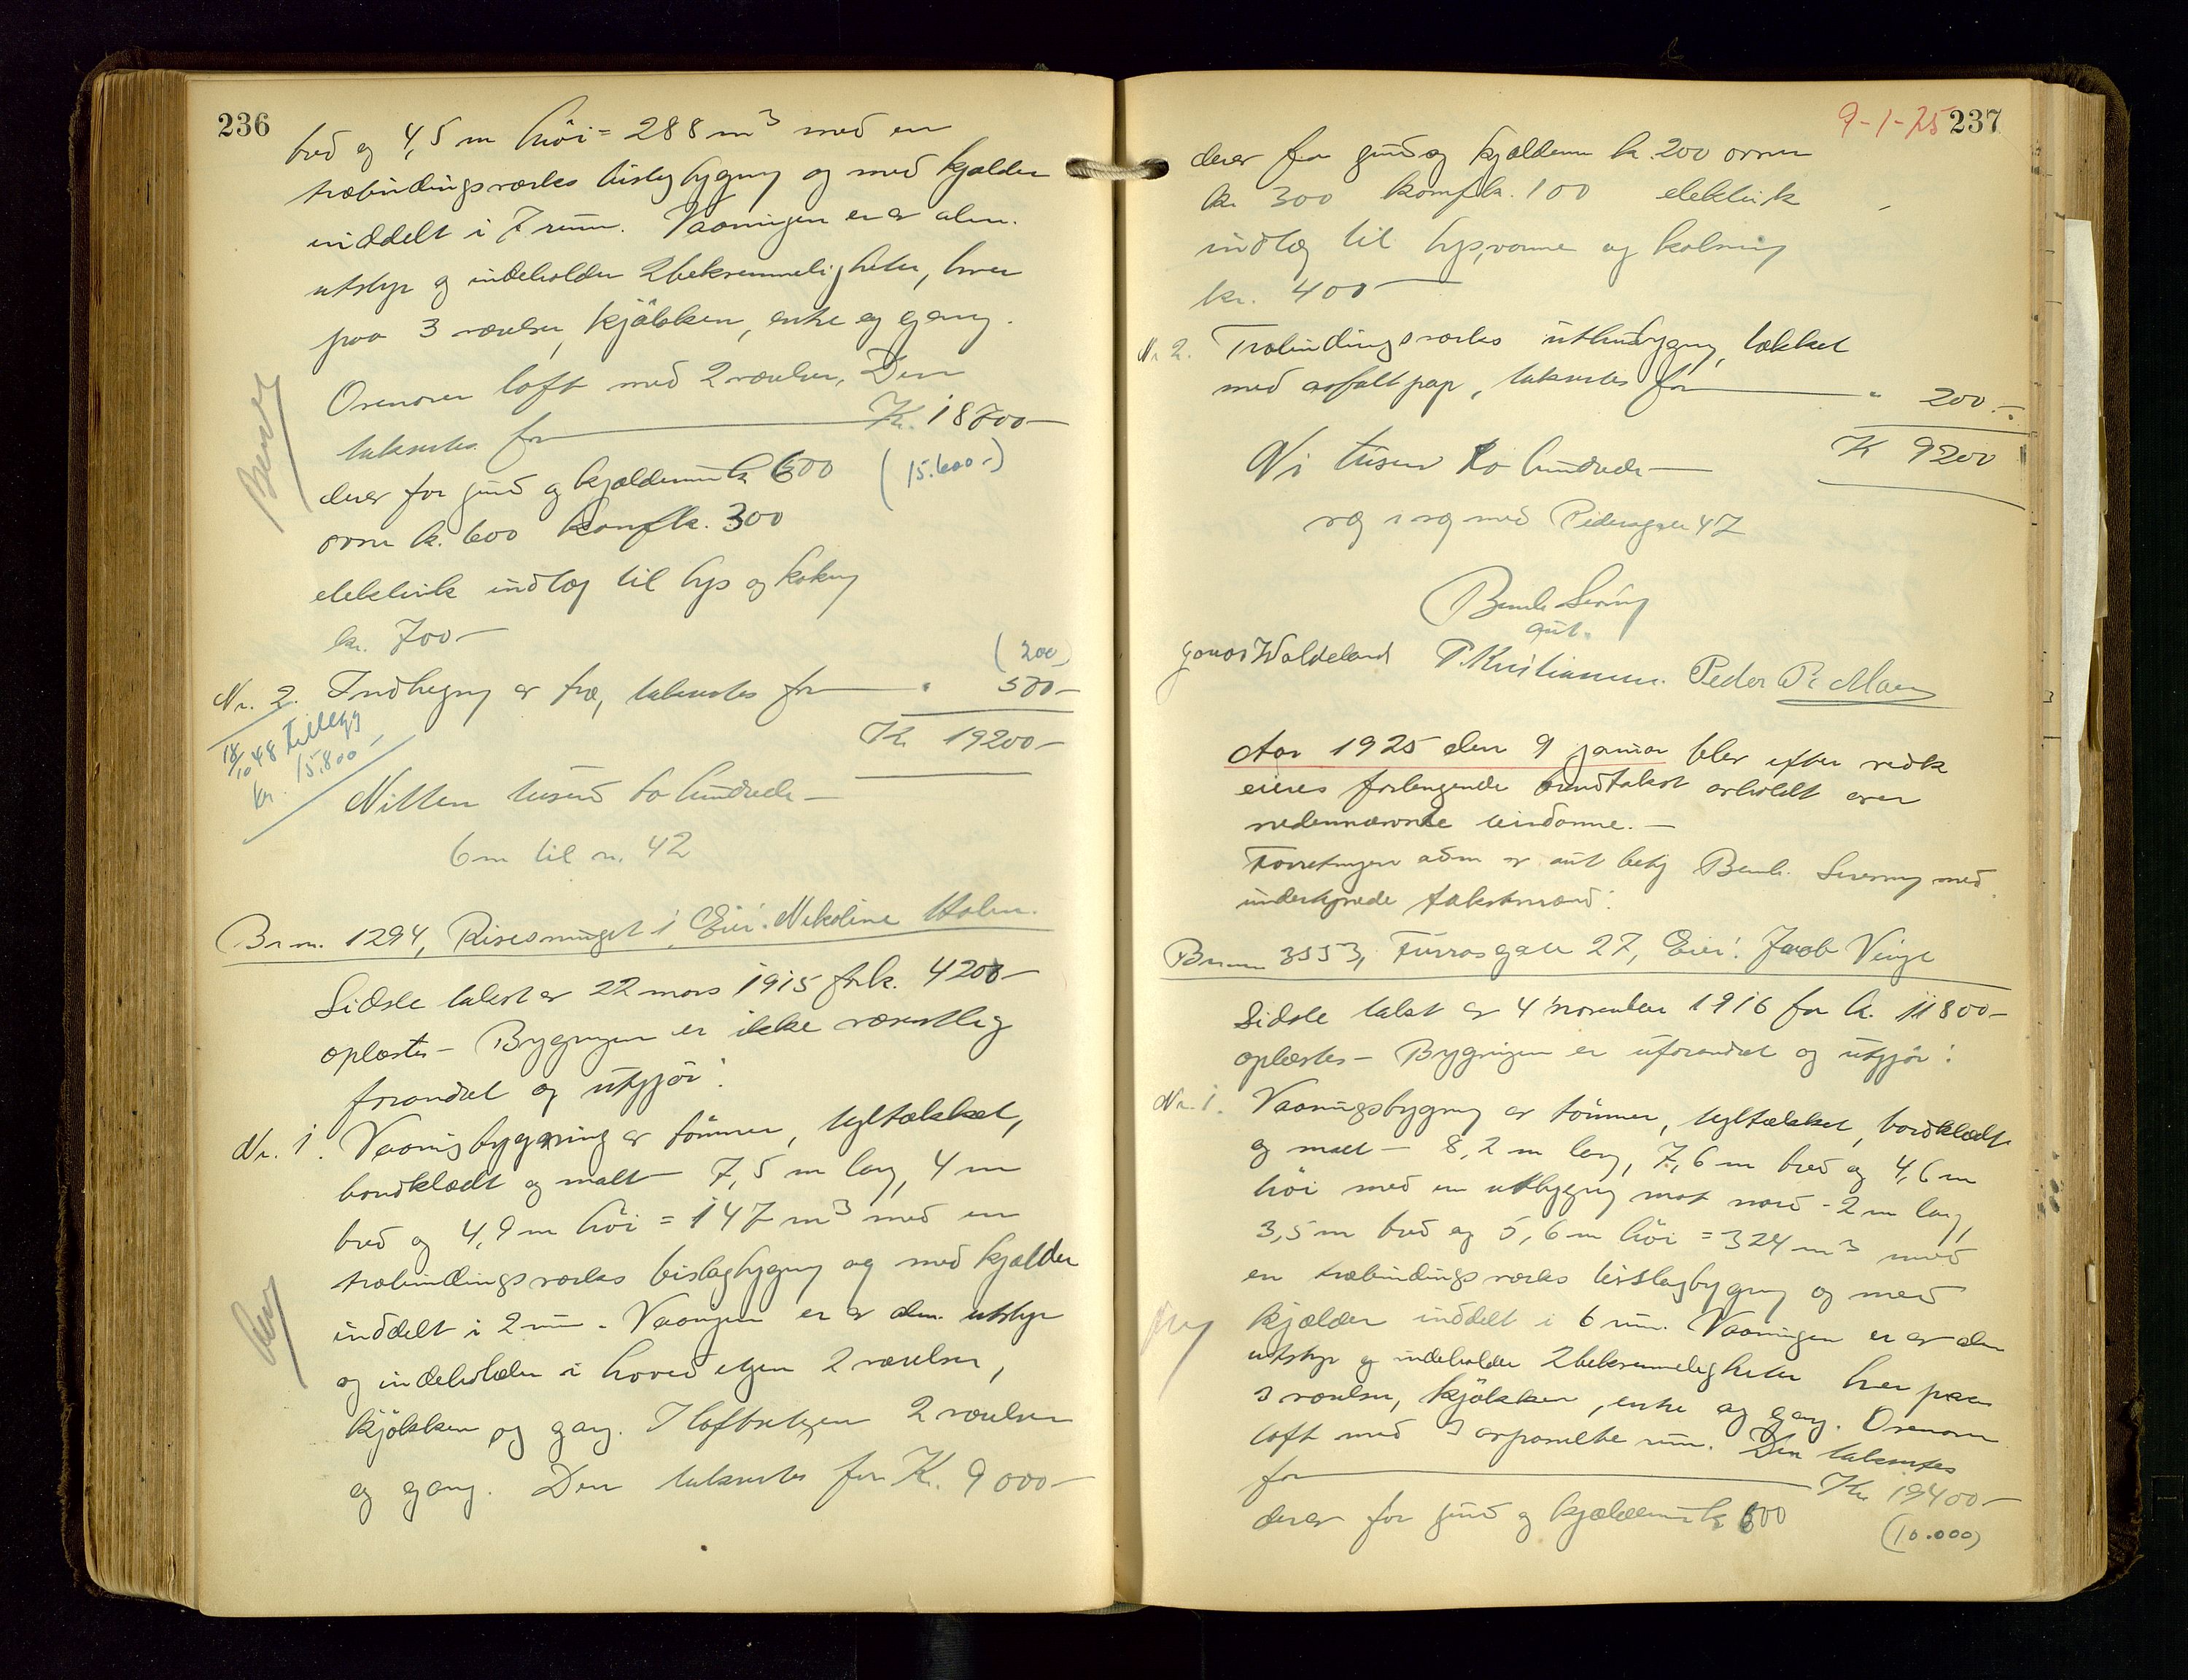 236
bred og 4,5 m høi = 288 m³ med en
træbindingsværks bislagbygning og med kjælder
inddelt i 7 rum. Vaaningen er av alm.
utstyr og indeholder 2 bekvemmeligheter, hver
paa 3 værelser, kjøkken, entre og gang.
Ovenover loft med 2 værelser. Den
taksertes for Kr. 18700-
derav for grund og kjældermur k 600 (15.600.-)
ovne k. 600 komf k. 300
elektrisk indlæg til lys og kokning
kr. 700-
(200)
Nr. 2. Indhegning av træ, taksertes for " 500-
18/10 48 Tillegg
kr. 15.800-
Kr. 19200-
Nitten tusend to hundrede-
6 m til n. 42
Br nr. 1294, i Eier: Nikoline Holm.
Sidste takst av 22 mars 1915 for k. 4200-
oplæstes - Bygningen er ikke væsentlig
forandret og utgjør:
Nr. 1. Vaaningsbygning av tømmer, tegltækket,
bordklædt og malt - 7,5 m lang, 4 m
bred og 4,9 m høi = 147 m³ med en
træbindingsværks bislagbygning og med kjælder
inddelt i 2 rum. Vaaningen er av alm. utstyr
og indeholder i hovedetagen 2 værelser,
kjøkken og gang. I loftsetagen 2 værelser
og gang. Den taksertes for Kr. 9000-
9-1-25 237
derav for grund og kjældermur k. 200 ovner
kr 300 komf k. 100 elektrisk
indlæg til lys, varme og kokning
kr. 400-
Nr 2. Træbindingsværks uthusbygning, tækket
med asfaltpap, taksertes for " 200.-
K 9200
Ni tusen to hundrede-
væg i væg med Pedersgate 47
Bernh Severing
aut.
Jonas Waldeland P. Kristiansen. Peder P. Maa
Aar 1925 den 9 januar blev efter vedk
eieres forlangende brandtakst avholdt over
nedennævnte eiendomme.-
Forretningen adm av aut betj Bernh. Severing med
undertegnede takstmænd:
Br nr 3553, Furrasgate 27, Eier: Jacob Vinje
Sidste takst av 4 november 1916 for k. 11800-
oplæstes - Bygningen er uforandret og utgjør:
Nr. 1. Vaaningsbygning av tømmer, tegltækket, bordklædt
og malt - 8,2 m lang, 7,6 m bred og 4,6 m
høi med en utbygning mot nord - 2 m lang,
3,5 m bred og 5,6 m høi = 324 m³ med
en træbindingsværks bislagbygning og med
kjælder inddelt i 6 rum. Vaaningen er av alm
utstyr og indeholder 2 bekvemmeligheter hver paa
3 værelser, kjøkken, entre og gang. Ovenover
loft med 3 avpanelte rum. Den taksertes
for Kr. 19400-
derav for grund og kjældermur k 600 (10.000)